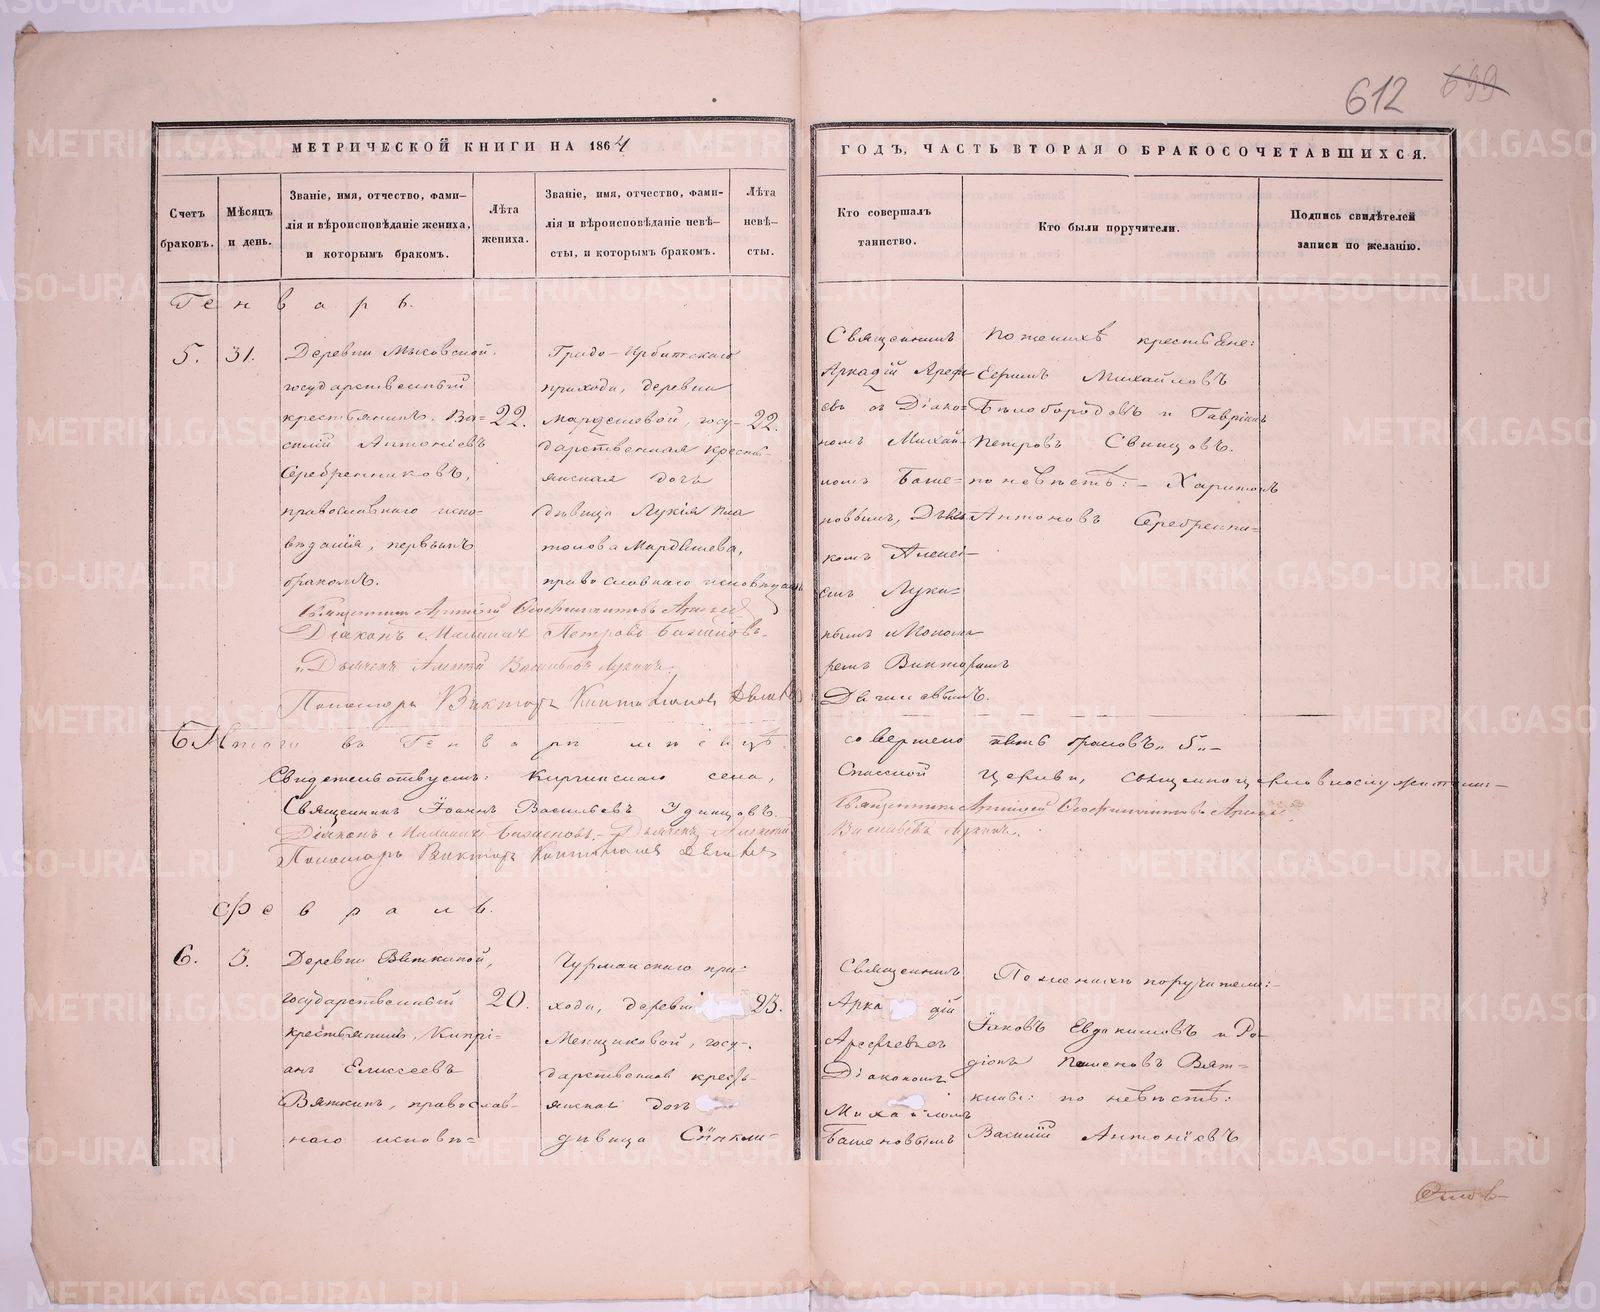 612 699
МЕТРИЧЕСКОЙ КНИГИ НА 1864
ГОДЪ, ЧАСТЬ ВТОРАЯ О БРАКОСОЧЕТАВШИХСЯ.
Счетъ
браковъ.
Мѣсяцъ
и день.
Званіе, имя, отчество, фами-
лія и вѣроисповѣданіе жениха,
и которымъ бракомъ.
Лѣта
жениха.
Званіе, имя, отчество, фами-
лія и вѣроисповѣданіе невѣ-
сты, и которымъ бракомъ.
Лѣта
невѣ-
сты.
Кто совершалъ
таинство.
Кто были поручители.
Подпись свидѣтелей
записи по желанію.
Генварь.
5.
31.
Деревни
государственный
крестьянинъ, Ва-
силій Антоніевъ
Серебренниковъ,
православнаго испо-
вѣданія, первымъ
бракомъ.
22.
Градо-Ирбитскаго
прихода, деревни
Мардышевой, госу-
дарственная кресть-
янская дочь
дѣвица Лукія Пла
тонова Мардышева,
православнаго исповѣданія
22.
Священникъ
Аркадій Арефь
евъ съ Діако-
номъ Михаи-
ломъ Баше-
новымъ, Дьяч
комъ Алексі-
емъ Луки-
нымъ и Понома
ремъ Викторомъ
По женихѣ крестьяне:
Ефимъ Михайловъ
Бѣлобородовъ и Гаврiилъ
Петровъ Свинцовъ.
по невѣстѣ: - Харитонъ
Антоновъ Серебренни-
Священникъ
Діаконъ Михаилъ Петровъ Баженовъ.
Дьячекъ
Пономарь Викторъ
Итого въ Генварѣ мѣсяцѣ
совершено пять браковъ "5"-
Свидетельствуемъ: Киргинскаго села,
Спасской церкви, священноцерковнослужители:-
Священникъ Іоаннъ Васильевъ Удинцовъ.
Священникъ
Діаконъ Михаилъ Баженовъ.- Дьячекъ Алексѣй
Васильевъ Лукинъ.
Пономарь Викторъ
Февраль.
6.
3.
Деревни Вяткиной,
государственный
крестьянинъ, Кипрі-
анъ Елисеевъ
Вяткинъ, православ-
наго исповѣ-
20.
Чурманскаго при-
хода, деревни
Менщиковой, госу-
дарственная кресть-
янская дочь
дѣвица Синкли-
23.
Священникъ
Аркадій
Арефьевъ съ
Діакономъ
Михаиломъ
Башеновымъ
По женихѣ поручители:-
Іаковъ Евдокимовъ и Ро-
діонъ Пименовъ Вят-
кины: по невѣстѣ:
Василій Антоніевъ